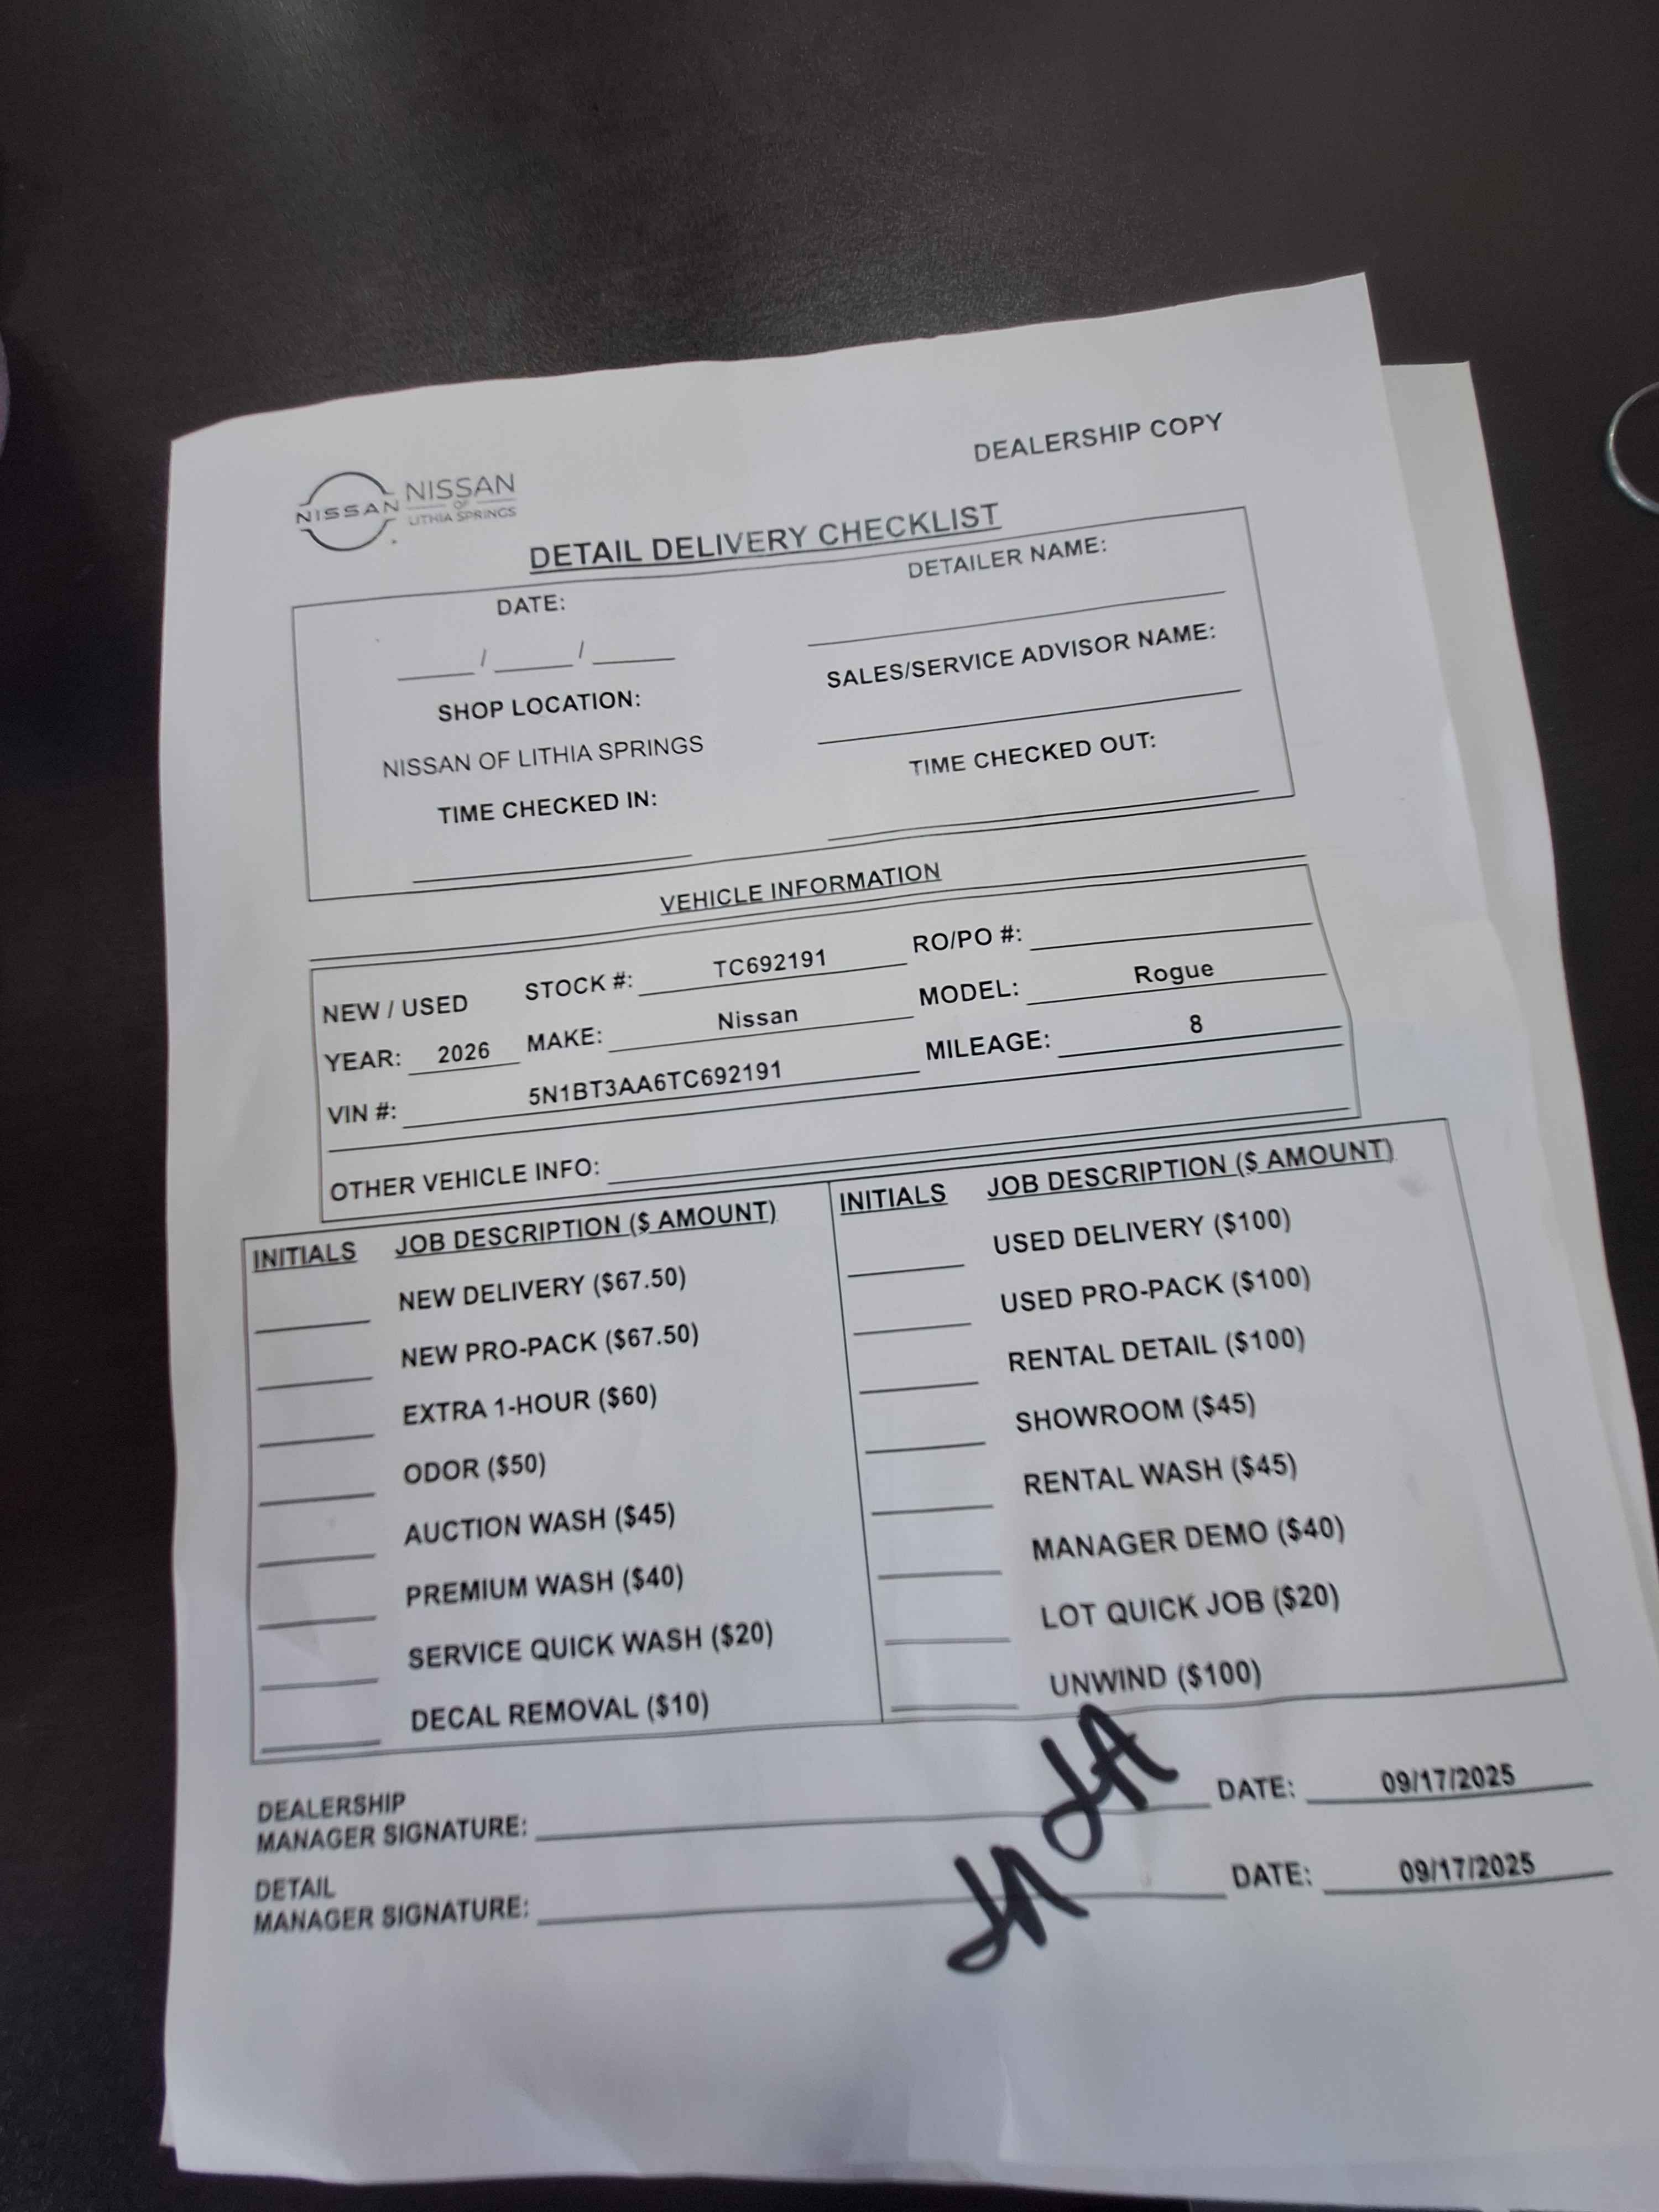 DEALERSHIP COPY
NISSAN NISSAN
OF
LITHIA SPRINGS
DETAIL DELIVERY CHECKLIST
DATE: DETAILER NAME:
____ / ____ / ____
SHOP LOCATION: SALES/SERVICE ADVISOR NAME:
NISSAN OF LITHIA SPRINGS
TIME CHECKED IN: TIME CHECKED OUT:
VEHICLE INFORMATION
NEW / USED STOCK #: TC692191 RO/PO #:
YEAR: 2026 MAKE: Nissan MODEL: Rogue
VIN #: 5N1BT3AA6TC692191 MILEAGE: 8
OTHER VEHICLE INFO:
INITIALS JOB DESCRIPTION ($ AMOUNT) INITIALS JOB DESCRIPTION ($ AMOUNT)
NEW DELIVERY ($67.50) USED DELIVERY ($100)
NEW PRO-PACK ($67.50) USED PRO-PACK ($100)
EXTRA 1-HOUR ($60) RENTAL DETAIL ($100)
ODOR ($50) SHOWROOM ($45)
AUCTION WASH ($45) RENTAL WASH ($45)
PREMIUM WASH ($40) MANAGER DEMO ($40)
SERVICE QUICK WASH ($20) LOT QUICK JOB ($20)
DECAL REMOVAL ($10) UNWIND ($100)
DEALERSHIP
MANAGER SIGNATURE: DATE: 09/17/2025
DETAIL
MANAGER SIGNATURE: DATE: 09/17/2025